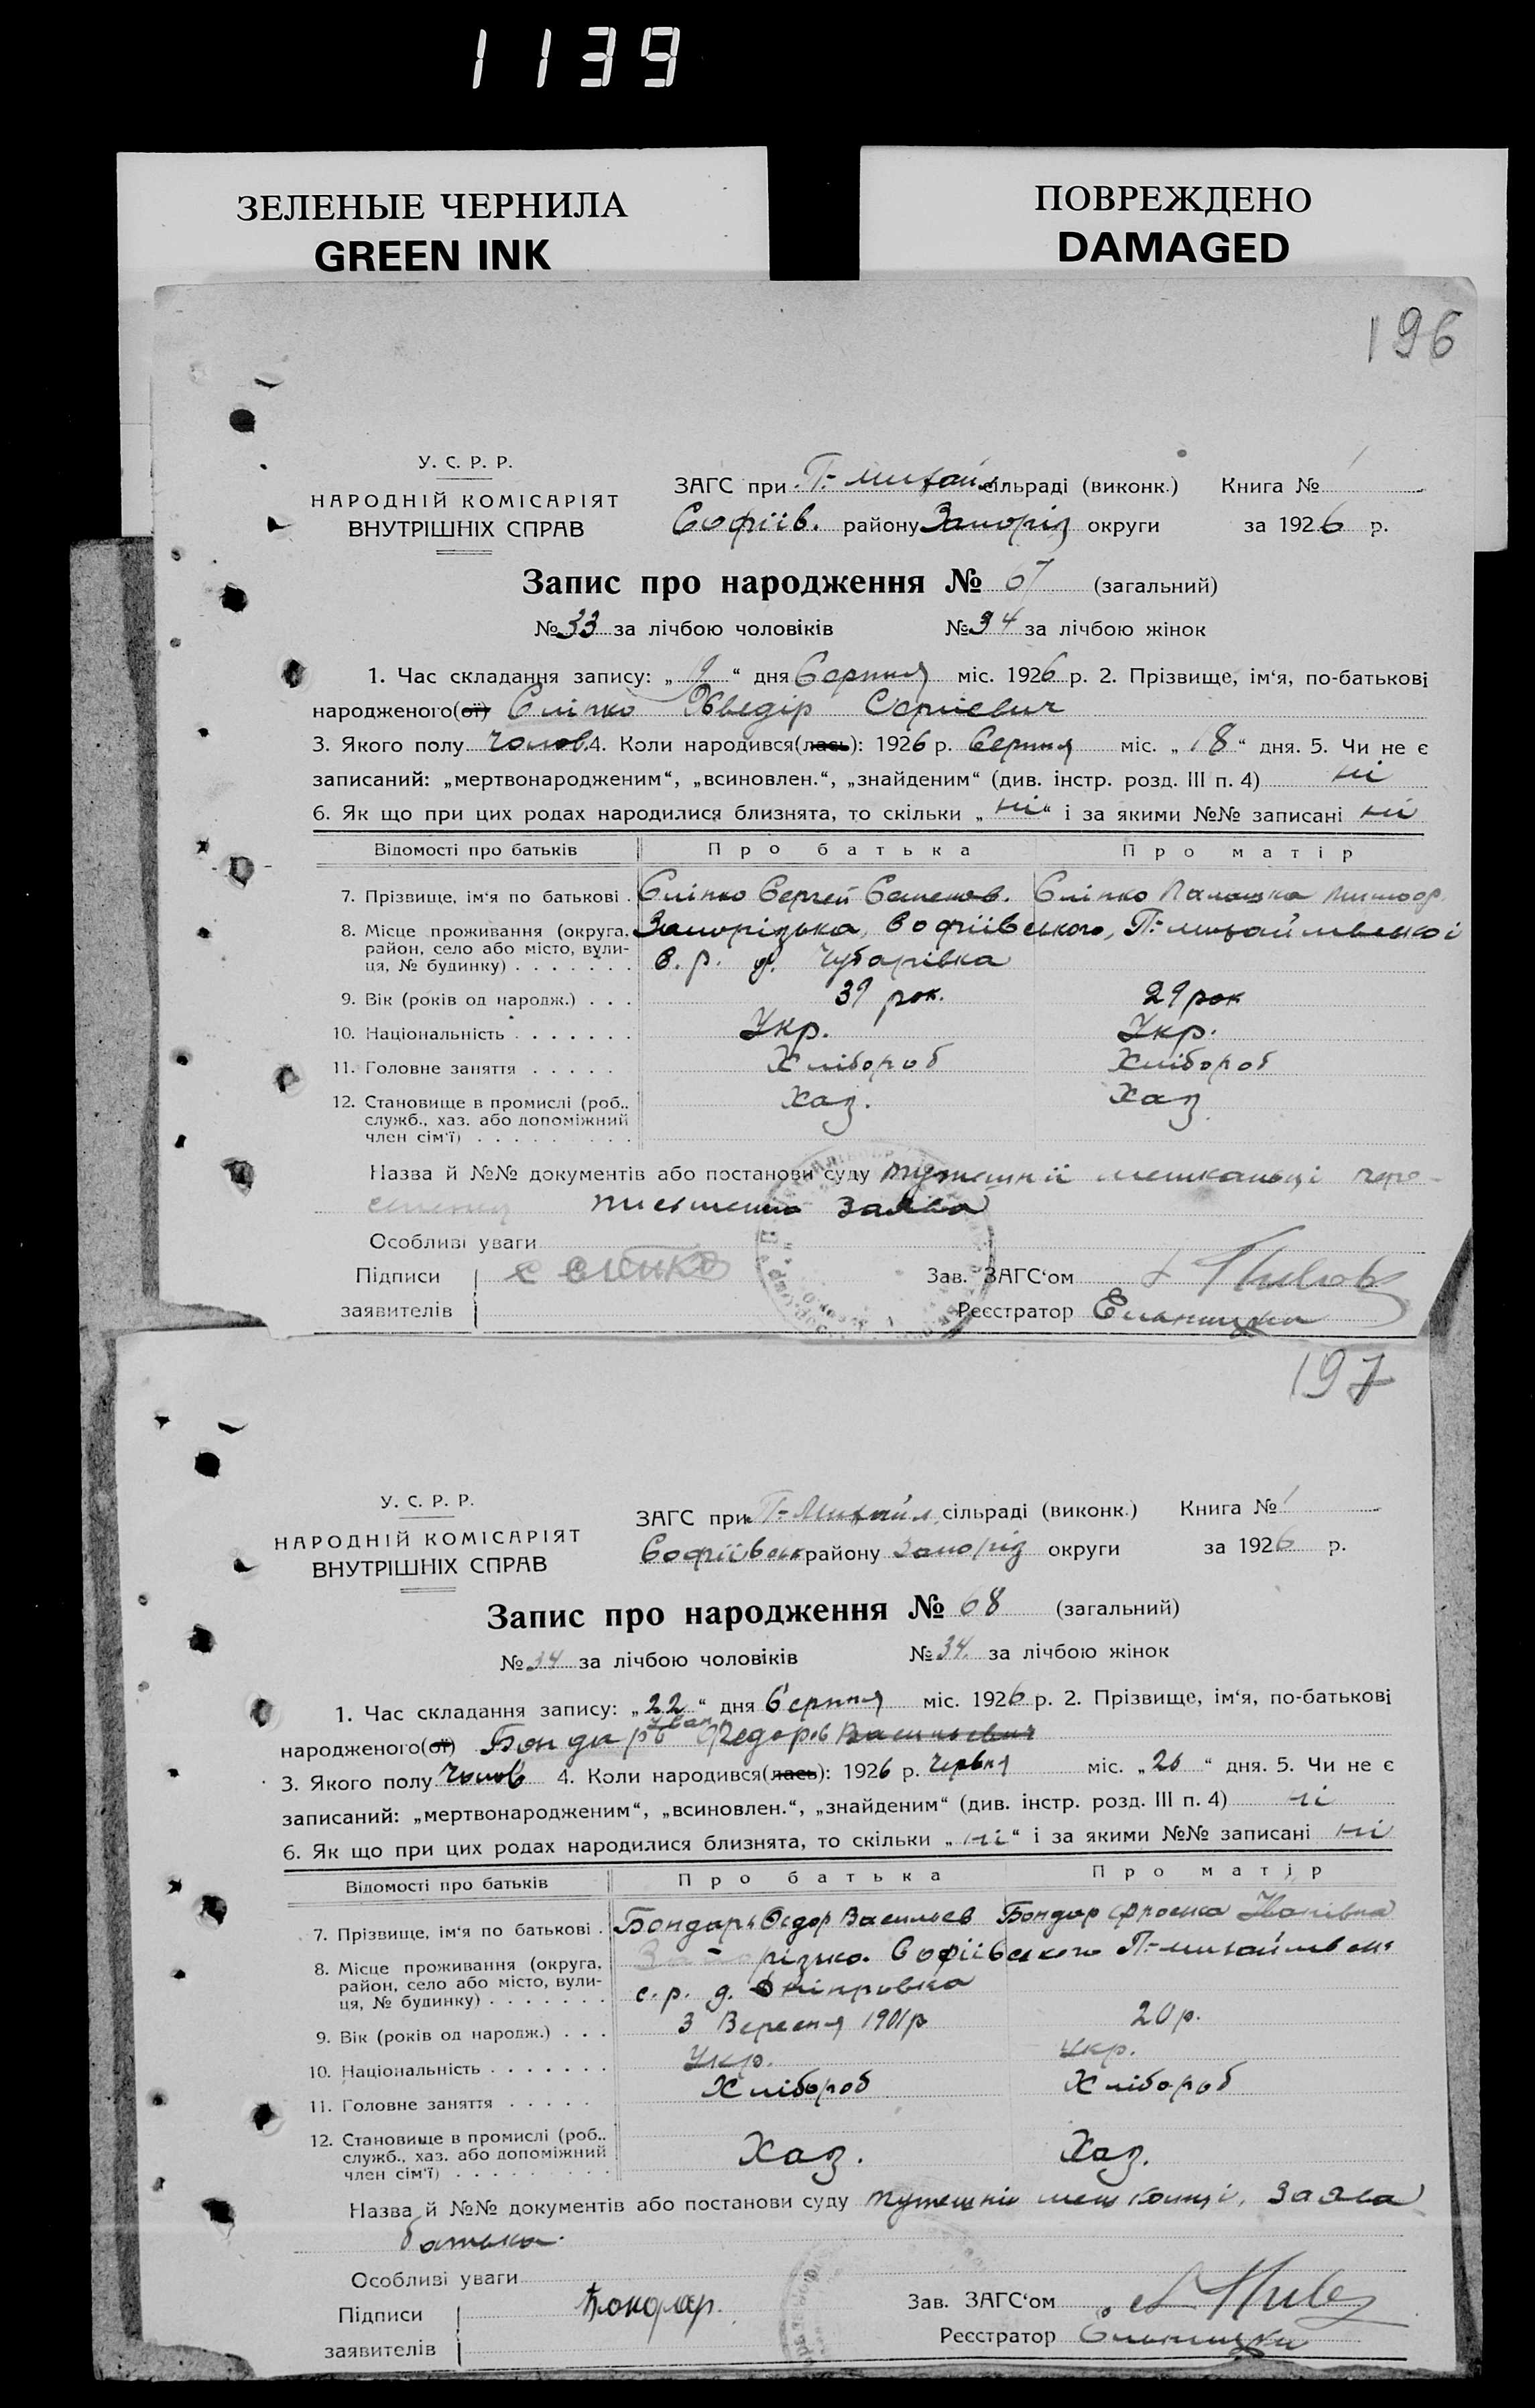 1139
ЗЕЛЕНЫЕ ЧЕРНИЛА
GREEN INK
ПОВРЕЖДЕНО
DAMAGED
196
У. С. Р. Р.
НАРОДНІЙ КОМІСАРІЯТ
ВНУТРІШНІХ СПРАВ
ЗАГС при П.-Михайл сільраді (виконк.) Книга № 1
Софіїв. району Запоріз округи за 1926 р.
Запис про народження № 67 (загальний)
№ 33 за лічбою чоловіків № 34 за лічбою жінок
1. Час складання запису: „ “ дня Серпня міс. 1926 р. 2. Прізвище, ім‘я, по-батькові
народженого(ої) Сліпко Хведір Сергієвич
3. Якого полу чолов. 4. Коли народився(лась): 1926 р. Серпня міс. „18“ дня. 5. Чи не є
записаний: „мертвонародженим“, „всиновлен.“, „знайденим“ (див. інстр. розд. III п. 4) ні
6. Як що при цих родах народилися близнята, то скільки „ні“ і за якими №№ записані ні
Відомості про батьків Про батька Про матір
7. Прізвище, ім‘я по батькові . Сліпко Сергей Семенов. Сліпко Палашка
8. Місце проживання (округа, Запорізька, Софіївського, П.-михайлівської
район, село або місто, вули-
ця, № будинку) . . . . . . . с. р. д. Чубарівка
9. Вік (років од народж.) . . . 39 рок. 29 рок
10. Національність . . . . . . . Укр. Укр.
11. Головне заняття . . . . . Хлібороб Хлібороб
12. Становище в промислі (роб.. Хаз. Хаз
служб., хаз. або допоміжний
член сім‘ї) . . . . . . . . .
Назва й №№ документів або постанови суду тутешнії мешканьці
письмена заява
Особливі уваги
Підписи С Слипко Зав. ЗАГС‘ом
заявителів Реєстратор
197
У. С. Р. Р.
НАРОДНІЙ КОМІСАРІЯТ
ВНУТРІШНІХ СПРАВ
ЗАГС при П-Михайл. сільраді (виконк.) Книга № 1
Софіївськ району Запоріз округи за 1926 р.
Запис про народження № 68 (загальний)
№ 34 за лічбою чоловіків № 34. за лічбою жінок
1. Час складання запису: „22“ дня Серпня міс. 1926 р. 2. Прізвище, ім‘я, по-батькові
Іван
народженого(ої) Бондарь Федоров Васильевич
3. Якого полу чолов 4. Коли народився(лась): 1926 р. Червня міс. „20“ дня. 5. Чи не є
записаний: „мертвонародженим“, „всиновлен.“, „знайденим“ (див. інстр. розд. III п. 4) ні
6. Як що при цих родах народилися близнята, то скільки „ні“ і за якими №№ записані ні
Відомості про батьків Про батька Про матір
7. Прізвище, ім‘я по батькові . Бондарь Федор Васильев Бондар Фроська Іванівна
8. Місце проживання (округа, Запорізька Софіївського П.-михайлівськ
район, село або місто, вули-
ця, № будинку) . . . . . . . с. р. д. Дніпровка
9. Вік (років од народж.) . . . 3 Вересня 1901р 20 р.
10. Національність . . . . . . . Укр. Укр.
11. Головне заняття . . . . . Хлібороб Хлібороб
12. Становище в промислі (роб.. Хаз. Хаз.
служб., хаз. або допоміжний
член сім‘ї) . . . . . . . . .
Назва й №№ документів або постанови суду тутешні мешканці, заява
батька.
Особливі уваги
Підписи Бондар. Зав. ЗАГС‘ом
заявителів Реєстратор